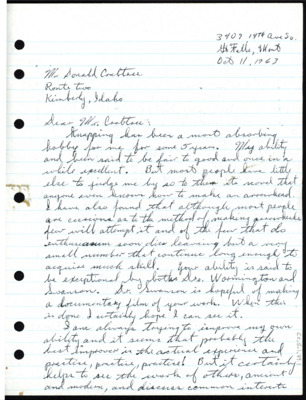 3409 14th Ave So.
Gt Falls, Mont
Oct 11, 1963
Mr Donald Crabtree
Route two
Kimberly, Idaho
Dear Mr. Crabtree:
Knapping has been a most absorbing
hobby for me for some years. My ability
and been said to be fair to good and once in a
while excellent. But most people have little
else to judge me by so to them its novel that
anyone even knows how to make an arrowhead.
I have also found that although most people
are curious as to the method of making arrowheads
few will attempt it and of the few that do
enthusiasm soon dies leaving but a very
small number that continue long enough to
acquire much skill. Your ability is said to
be exceptional by both Drs. Wormington and
Swanson. Dr. Swanson is hopeful of making
a documentary film of your work. When this
is done I certainly hope I can see it.
I am always trying to improve my own
ability and it seems that probably the
best improver is the actual experience and
practice, practice, practice! But it certainly
helps to see the work of others, ancient
and modern, and discuss common interests